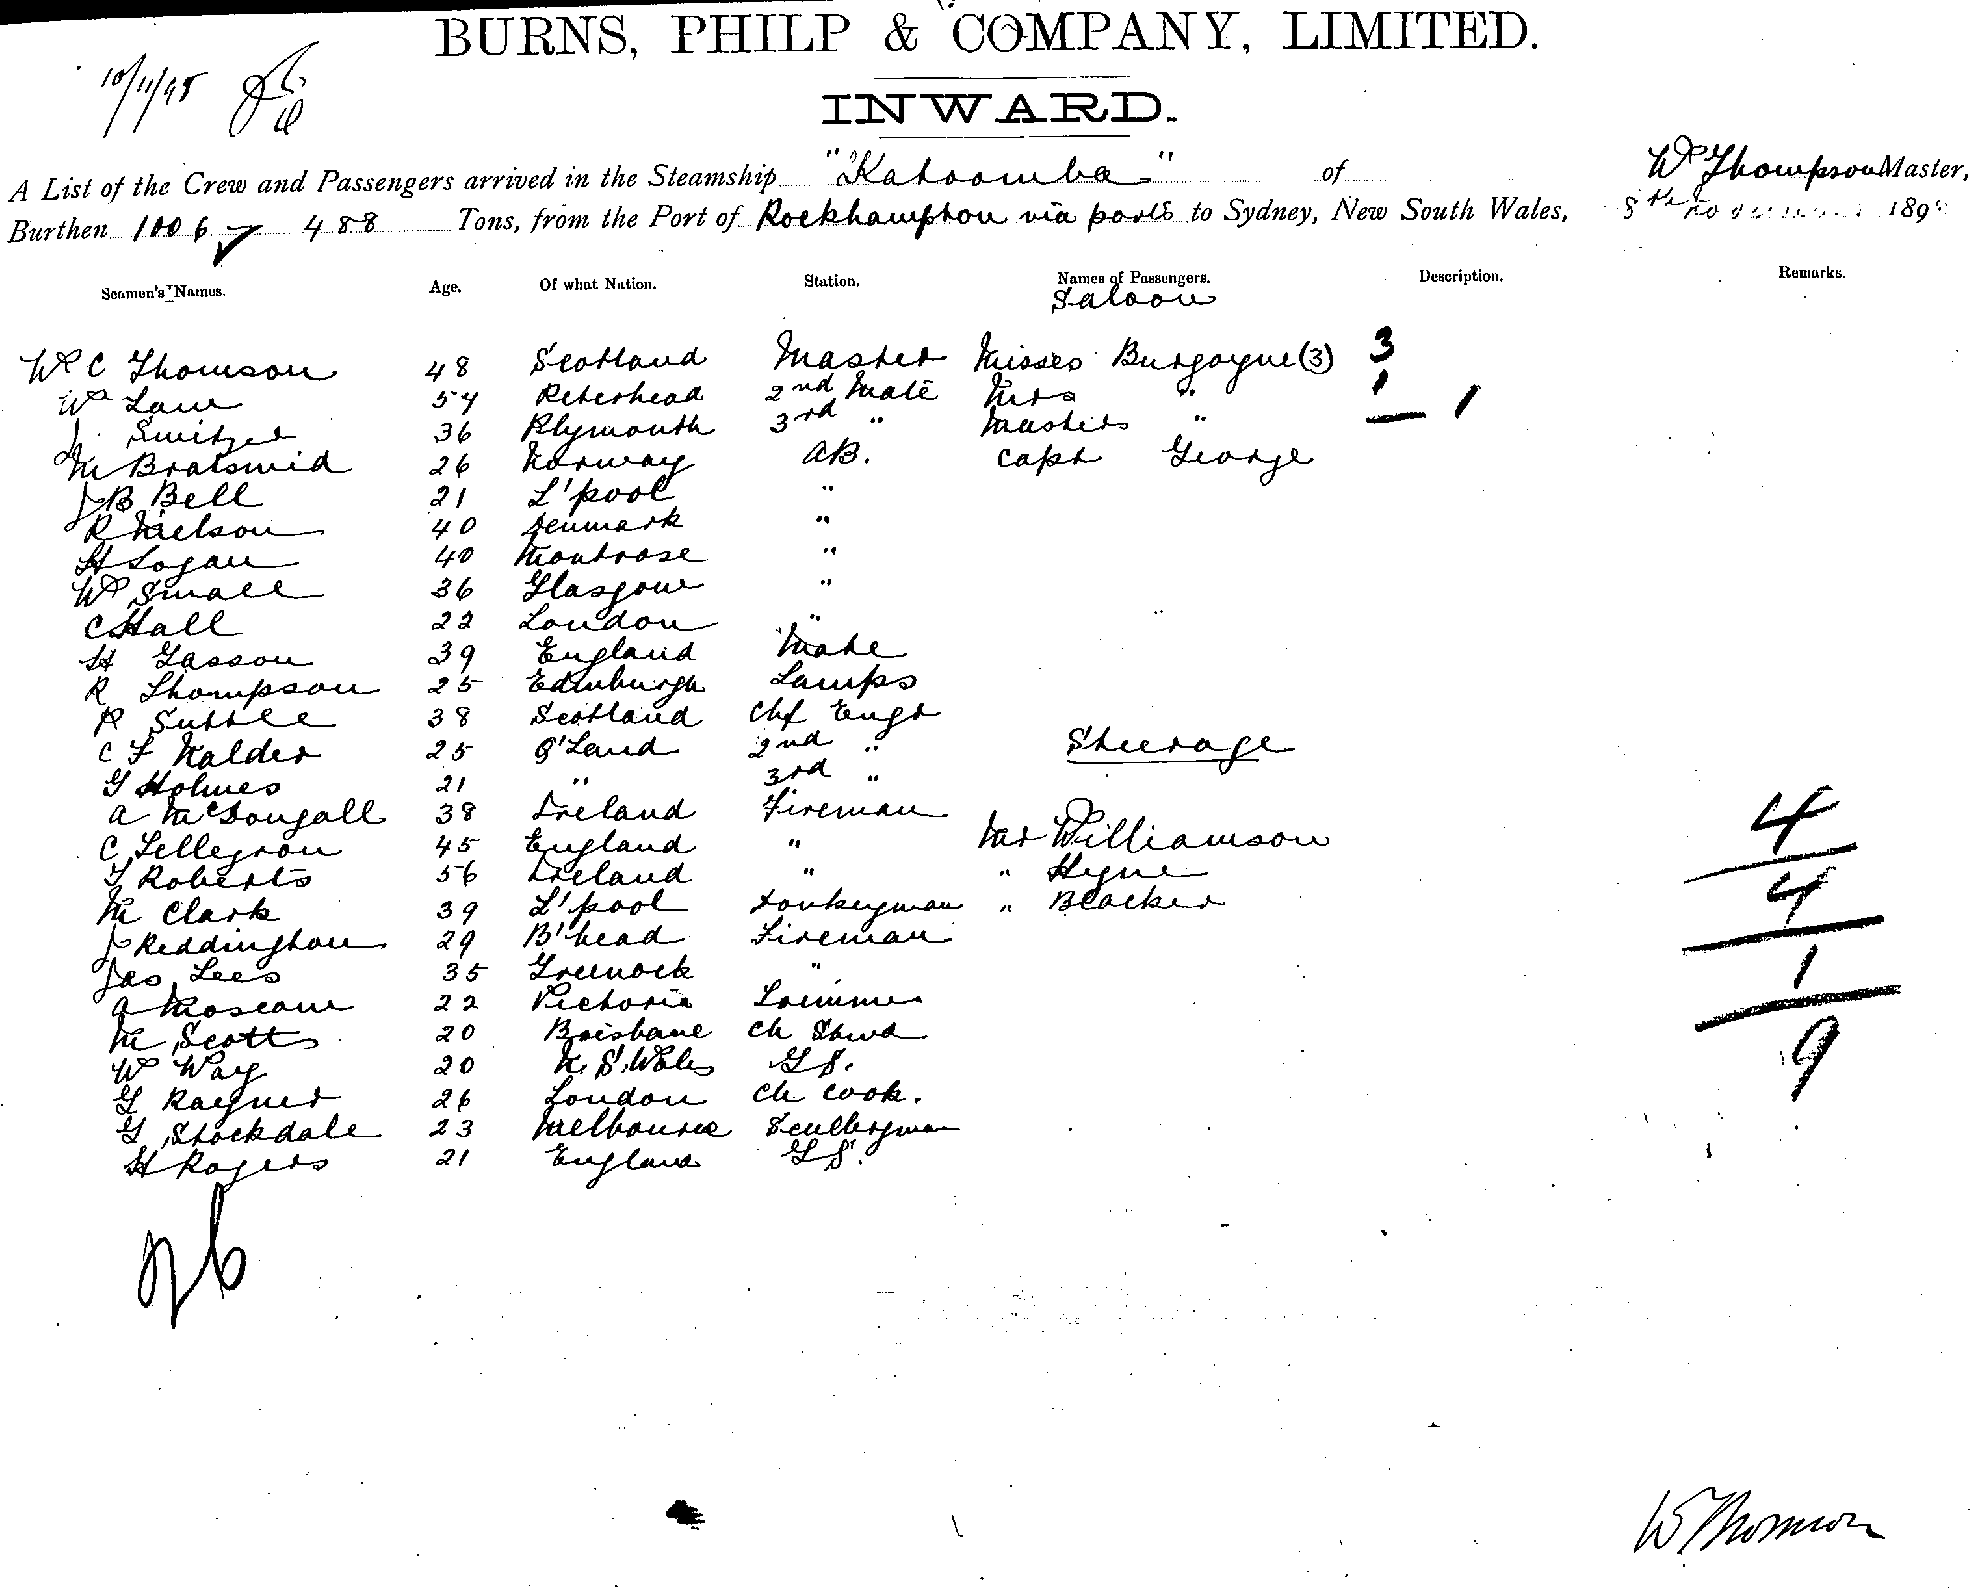 BURNS, PHILP & COMPANY, LIMITED.
10/11/98
INWARD.
A List of the Crew and Passengers arrived in the Steamship "Katoomba" of Wm Thompson Master,
Burthen 1006 488 Tons, from the Port of Rockhampton via ports to Sydney, New South Wales, 8th November 189
Seamen's Names. Age. Of what Nation. Station. Names of Passengers. Description. Remarks.
Saloon
Wm C Thomson 48 Scotland Master Misses Burgoyne (3) 3
Wm Law 54 Peterhead 2nd Mate Mrs " 1
Switzer 36 Plymouth 3rd " Masters " — 1
M Bratswid 26 Norway AB. Capt George
J B Bell 21 L'pool "
R Nielson 40 Denmark "
H Logan 40 Montrose "
Wm Small 36 Glasgow "
C Hall 22 London "
H Gasson 39 England Mate
R Thompson 25 Edinburgh Lamps
R Suttle 38 Scotland Chf Engr
C F Nalder 25 Q'Land 2nd " Steerage
G Holmes 21 " 3rd "
A McDougall 38 Ireland Fireman 4
C Pellegron 45 England " Mr Williamson
T Roberts 56 Ireland " " Hyne 4
M Clark 39 L'pool Donkeyman " Blacker
J Reddington 29 B'head Fireman
Jas Lees 35 Greenock " 1
A Moseam 22 Victoria Trimmer
M Scott 20 Brisbane Ch Stwd 9
W Way 20 N. S. Wales G S.
G Rayner 26 London Ch Cook.
G Stockdale 23 Melbourne Sculleryman
H Rogers 21 England G S.
W Thomson